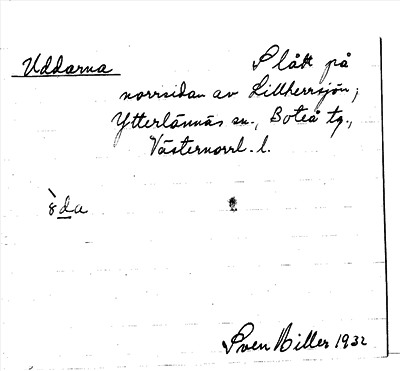 Uddarna
Slått på
norrsidan av Lillherrsjön;
Ytterlännäs sn., Boteå tg.,
Västernorrl. l.
Sven Hiller 1932